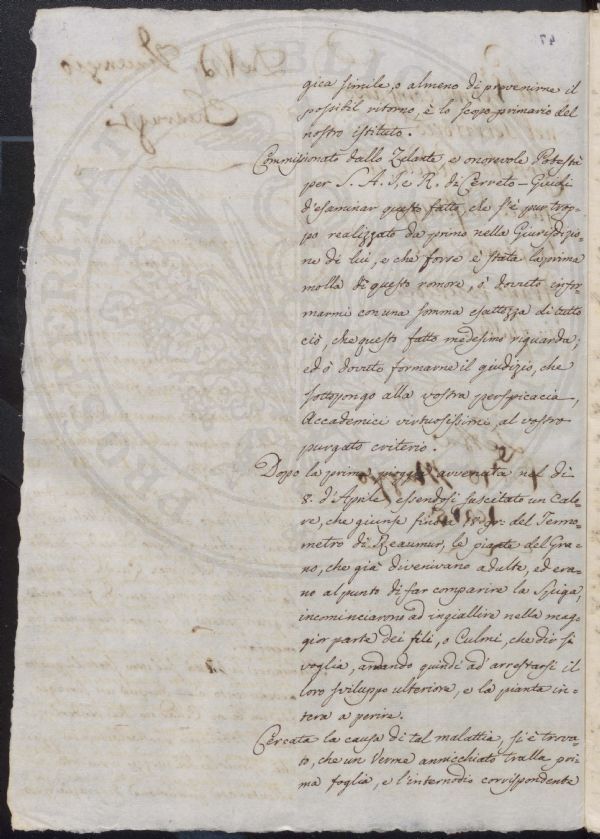 47
gica simile, o almeno di prevenirne il
possibil ritorno, è lo scopo primario del
nostro istituto.
Commissionato dallo Zelante e onorevole Potestà
per S. A. I. e R. di Cerreto-Guidi
d'esaminar questo fatto, che s'è pur trop-
po realizzato da primo nella Giurisdizio-
ne di lui, e che forse è stata la prima
molla di questo romore, ò dovuto infor-
marmi con una somma esattezza di tutto
ciò, che questo fatto medesimo riguarda;
ed ò dovuto formarne il giudizio, che
sottopongo alla vostra perspicacia,
Accademici virtuosissimi, al vostro
purgato criterio.
Dopo la prima pioggia avvenuta nel dì
8. d'Aprile essendosi suscitato un Calo-
re, che giunse fino a 18. gr. del Termo-
metro di Reaumur, le piante del Gra-
no, che già divenivano adulte, ed era-
no al punto di far comparire la Spiga,
incominciarono ad ingiallire nella mag-
gior parte dei fili, o Culmi, che dir si
voglia, andando quindi ad arrestarsi il
loro sviluppo ulteriore, e la pianta in-
tera a perire.
Cercata la causa di tal malattia, si è trova-
to, che un Verme annicchiato tralla pri-
ma foglia, e l'internodio corrispondente